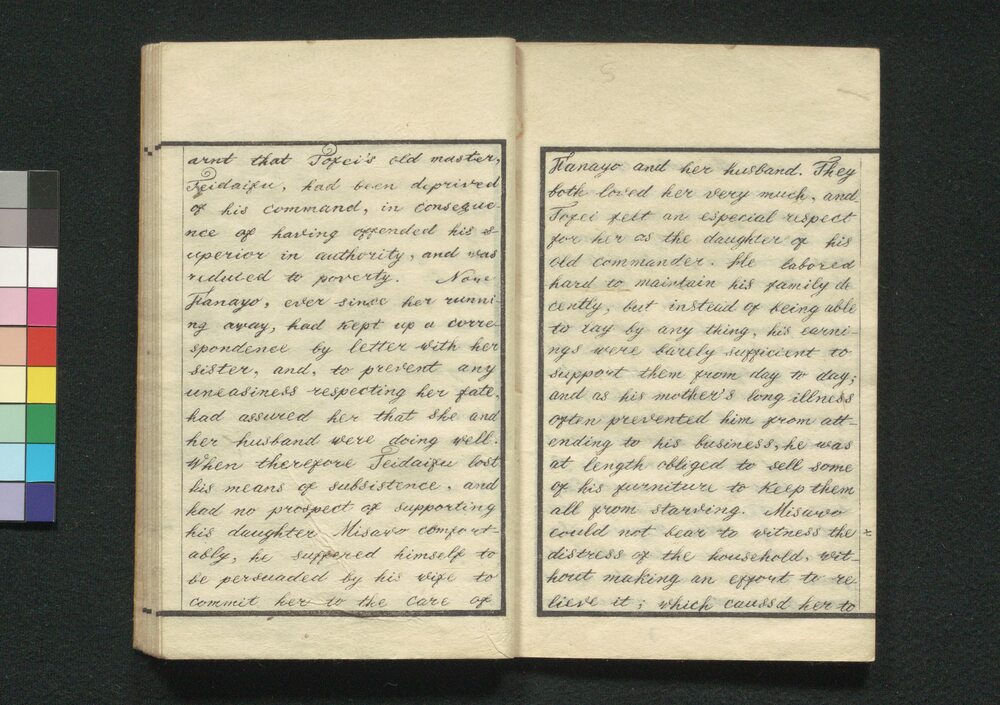 arnt that Tofei's old master,
Teidaifu, had been deprived
of his command, in conseque-
nce of having offended his s-
uperior in authority, and was
reduced to poverty. Now
Hanayo, ever since her runni-
ng away, had kept up a corre-
spondence by letter with her
sister, and, to prevent any
uneasiness respecting her fate,
had assured her that she and
her husband were doing well.
When therefore Teidaifu lost
his means of subsistence, and
had no prospect of supporting
his daughter Misawo comfort-
ably, he suffered himself to
be persuaded by his wife to
commit her to the care of
Hanayo and her husband. They
both loved her very much, and
Tofei felt an especial respect
for her as the daughter of his
old commander. He labored
hard to maintain his family de
cently, but instead of being able
to lay by any thing, his earni-
ngs were barely sufficient to
support them from day to day;
and as his mother's long illness
often prevented him from att-
ending to his business, he was
at length obliged to sell some
of his furniture to keep them
all from starving. Misawo
could not bear to witness the
distress of the household, wit-
hout making an effort to re
lieve it; which caussd her to